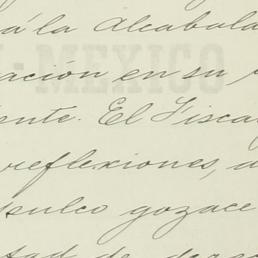 á la Alcabala
MEXICO
ación en su
ente. El Fisca
reflexiones, a
pulco gozace
tad de